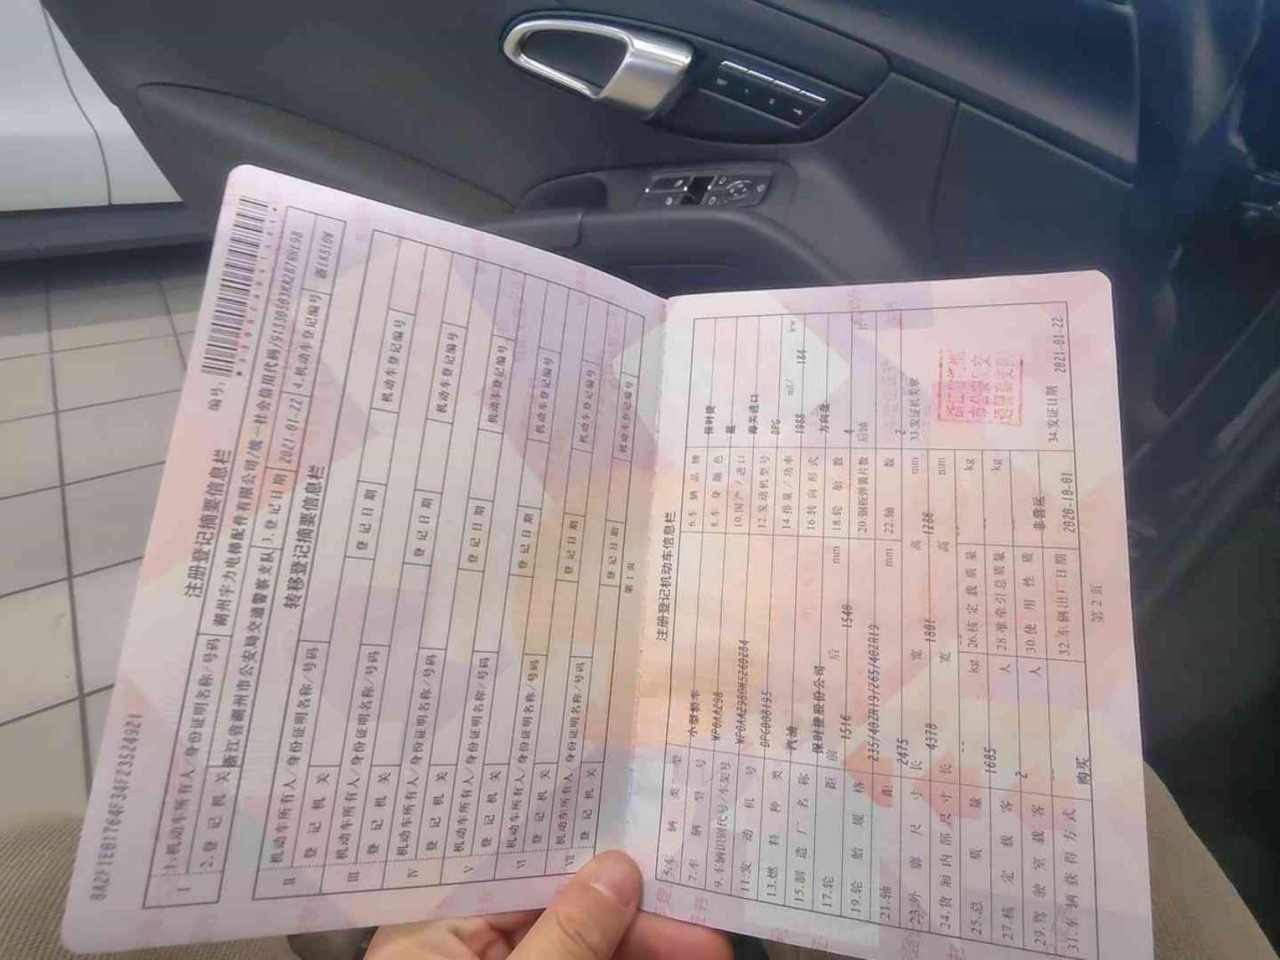 6A2F1E01764F34F23S24921
注册登记摘要信息栏
编号:
I
1.机动车所有人/身份证明名称/号码
湖州宇力电梯配件有限公司/统一社会信用代码/91330503MA2B76NL9B
2.登记机关
浙江省湖州市公安局交通警察支队
3.登记日期
2021-01-22
4.机动车登记编号
转移登记摘要信息栏
II
机动车所有人/身份证明名称/号码
登记机关
登记日期
机动车登记编号
III
机动车所有人/身份证明名称/号码
登记机关
登记日期
机动车登记编号
IV
机动车所有人/身份证明名称/号码
登记机关
登记日期
机动车登记编号
V
机动车所有人/身份证明名称/号码
登记机关
登记日期
机动车登记编号
VI
机动车所有人/身份证明名称/号码
登记机关
登记日期
机动车登记编号
VII
机动车所有人/身份证明名称/号码
登记机关
登记日期
机动车登记编号
第1页
注册登记机动车信息栏
5.车辆类型
小型轿车
6.车辆品牌
保时捷
7.车辆型号
WP0AA298
8.车身颜色
蓝
9.车辆识别代号/车架号
WP0AA2986MS260284
10.国产/进口
海关进口
11.发动机号
DPG008195
12.发动机型号
DPG
13.燃料种类
汽油
14.排量/功率
1988 ml/ 184 kw
15.制造厂名称
保时捷股份公司
16.转向形式
方向盘
17.轮距
前 1516 后 1540 mm
18.轮胎数
4
19.轮胎规格
235/40ZR19/265/40ZR19
20.钢板弹簧片数
后轴
21.轴距
2475 mm
22.轴数
2
23.外廓尺寸
长 4378 宽 1801 高 1286 mm
33.发证机关章
24.货厢内部尺寸
长 宽 高 mm
25.总质量
1685 kg
26.核定载质量
kg
27.核定载客
2 人
28.准牵引总质量
kg
29.驾驶室载客
人
30.使用性质
非营运
31.车辆获得方式
购买
32.车辆出厂日期
2020-10-01
34.发证日期
2021-01-22
第2页